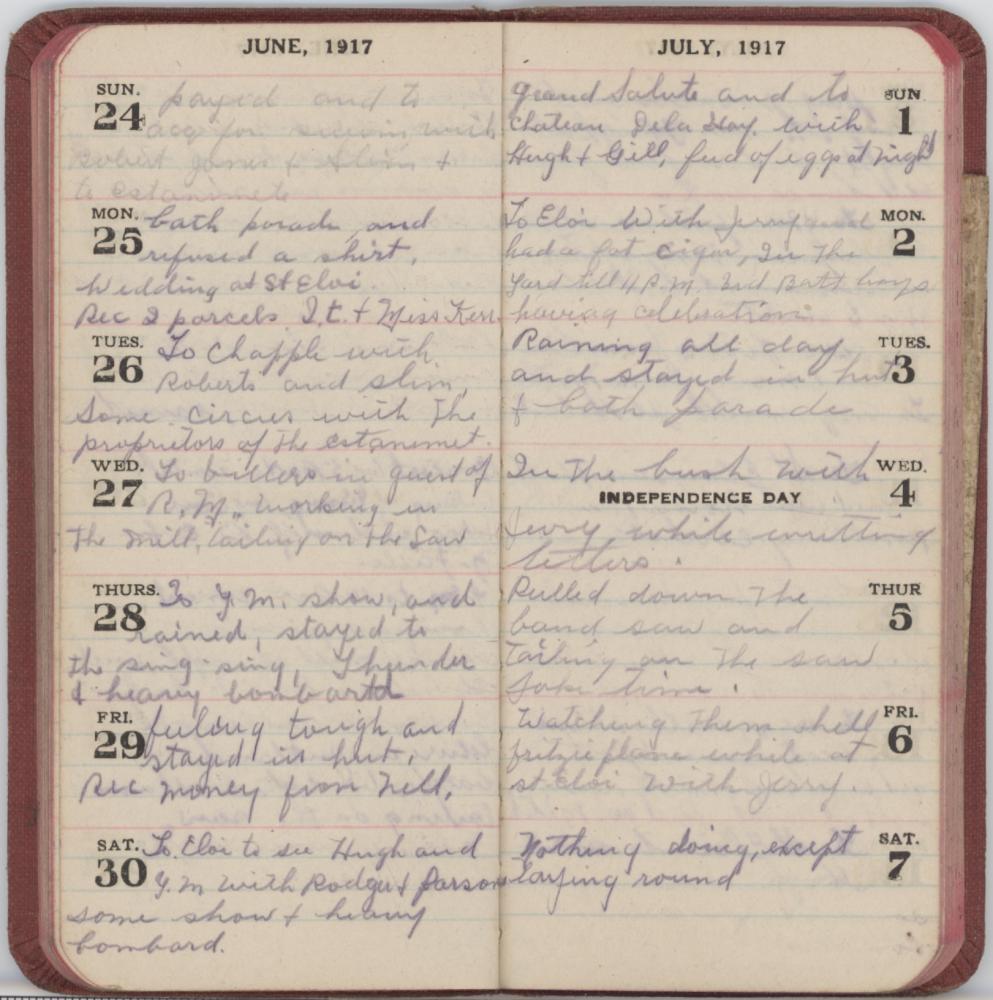 JUNE, 1917
SUN.
24
payed and to
acq for swim with
Robert Jones & Slim &
to estanimete
MON.
25
bath parade, and
refused a shirt,
Wedding at St Eloi.
Rec 2 parcels I.t. & Miss Kerr
TUES.
26
To Chapple with
Roberts and slim,
Some circus with The
proprietors of The estanemet.
WED.
27
To billers in quest of
R.M., working in
The Mill, tailing on the Saw
THURS.
28
To Y.M. show, and
rained, stayed to
the sing-sing, Thunder
& heavy bombartd
FRI.
29
feeling tough and
stayed in hut,
Rec money from Nell,
SAT.
30
To Eloi to see Hugh and
Y.M with Rodger & Parson
some show & heavy
bombard.
JULY, 1917
SUN
1
Grand Salute and to
Chateau Dela Hay, with
Hugh & Gill, feed of eggs at night
MON.
2
To Eloi With Jerry and
had a fat cigar, In The
Yard till 11 P.M. 3rd Batt boys
having celebration.
TUES.
3
Raining all day,
and stayed in hut
& bath parade
WED.
4
In The bush with
INDEPENDENCE DAY
Jerry while writting
letters.
THUR
5
Pulled down The
band saw and
Tailing on The saw
some time.
FRI.
6
Watching Them shell
fritzie plane while at
st Eloi With Jerry.
SAT.
7
Nothing doing, except
laying round